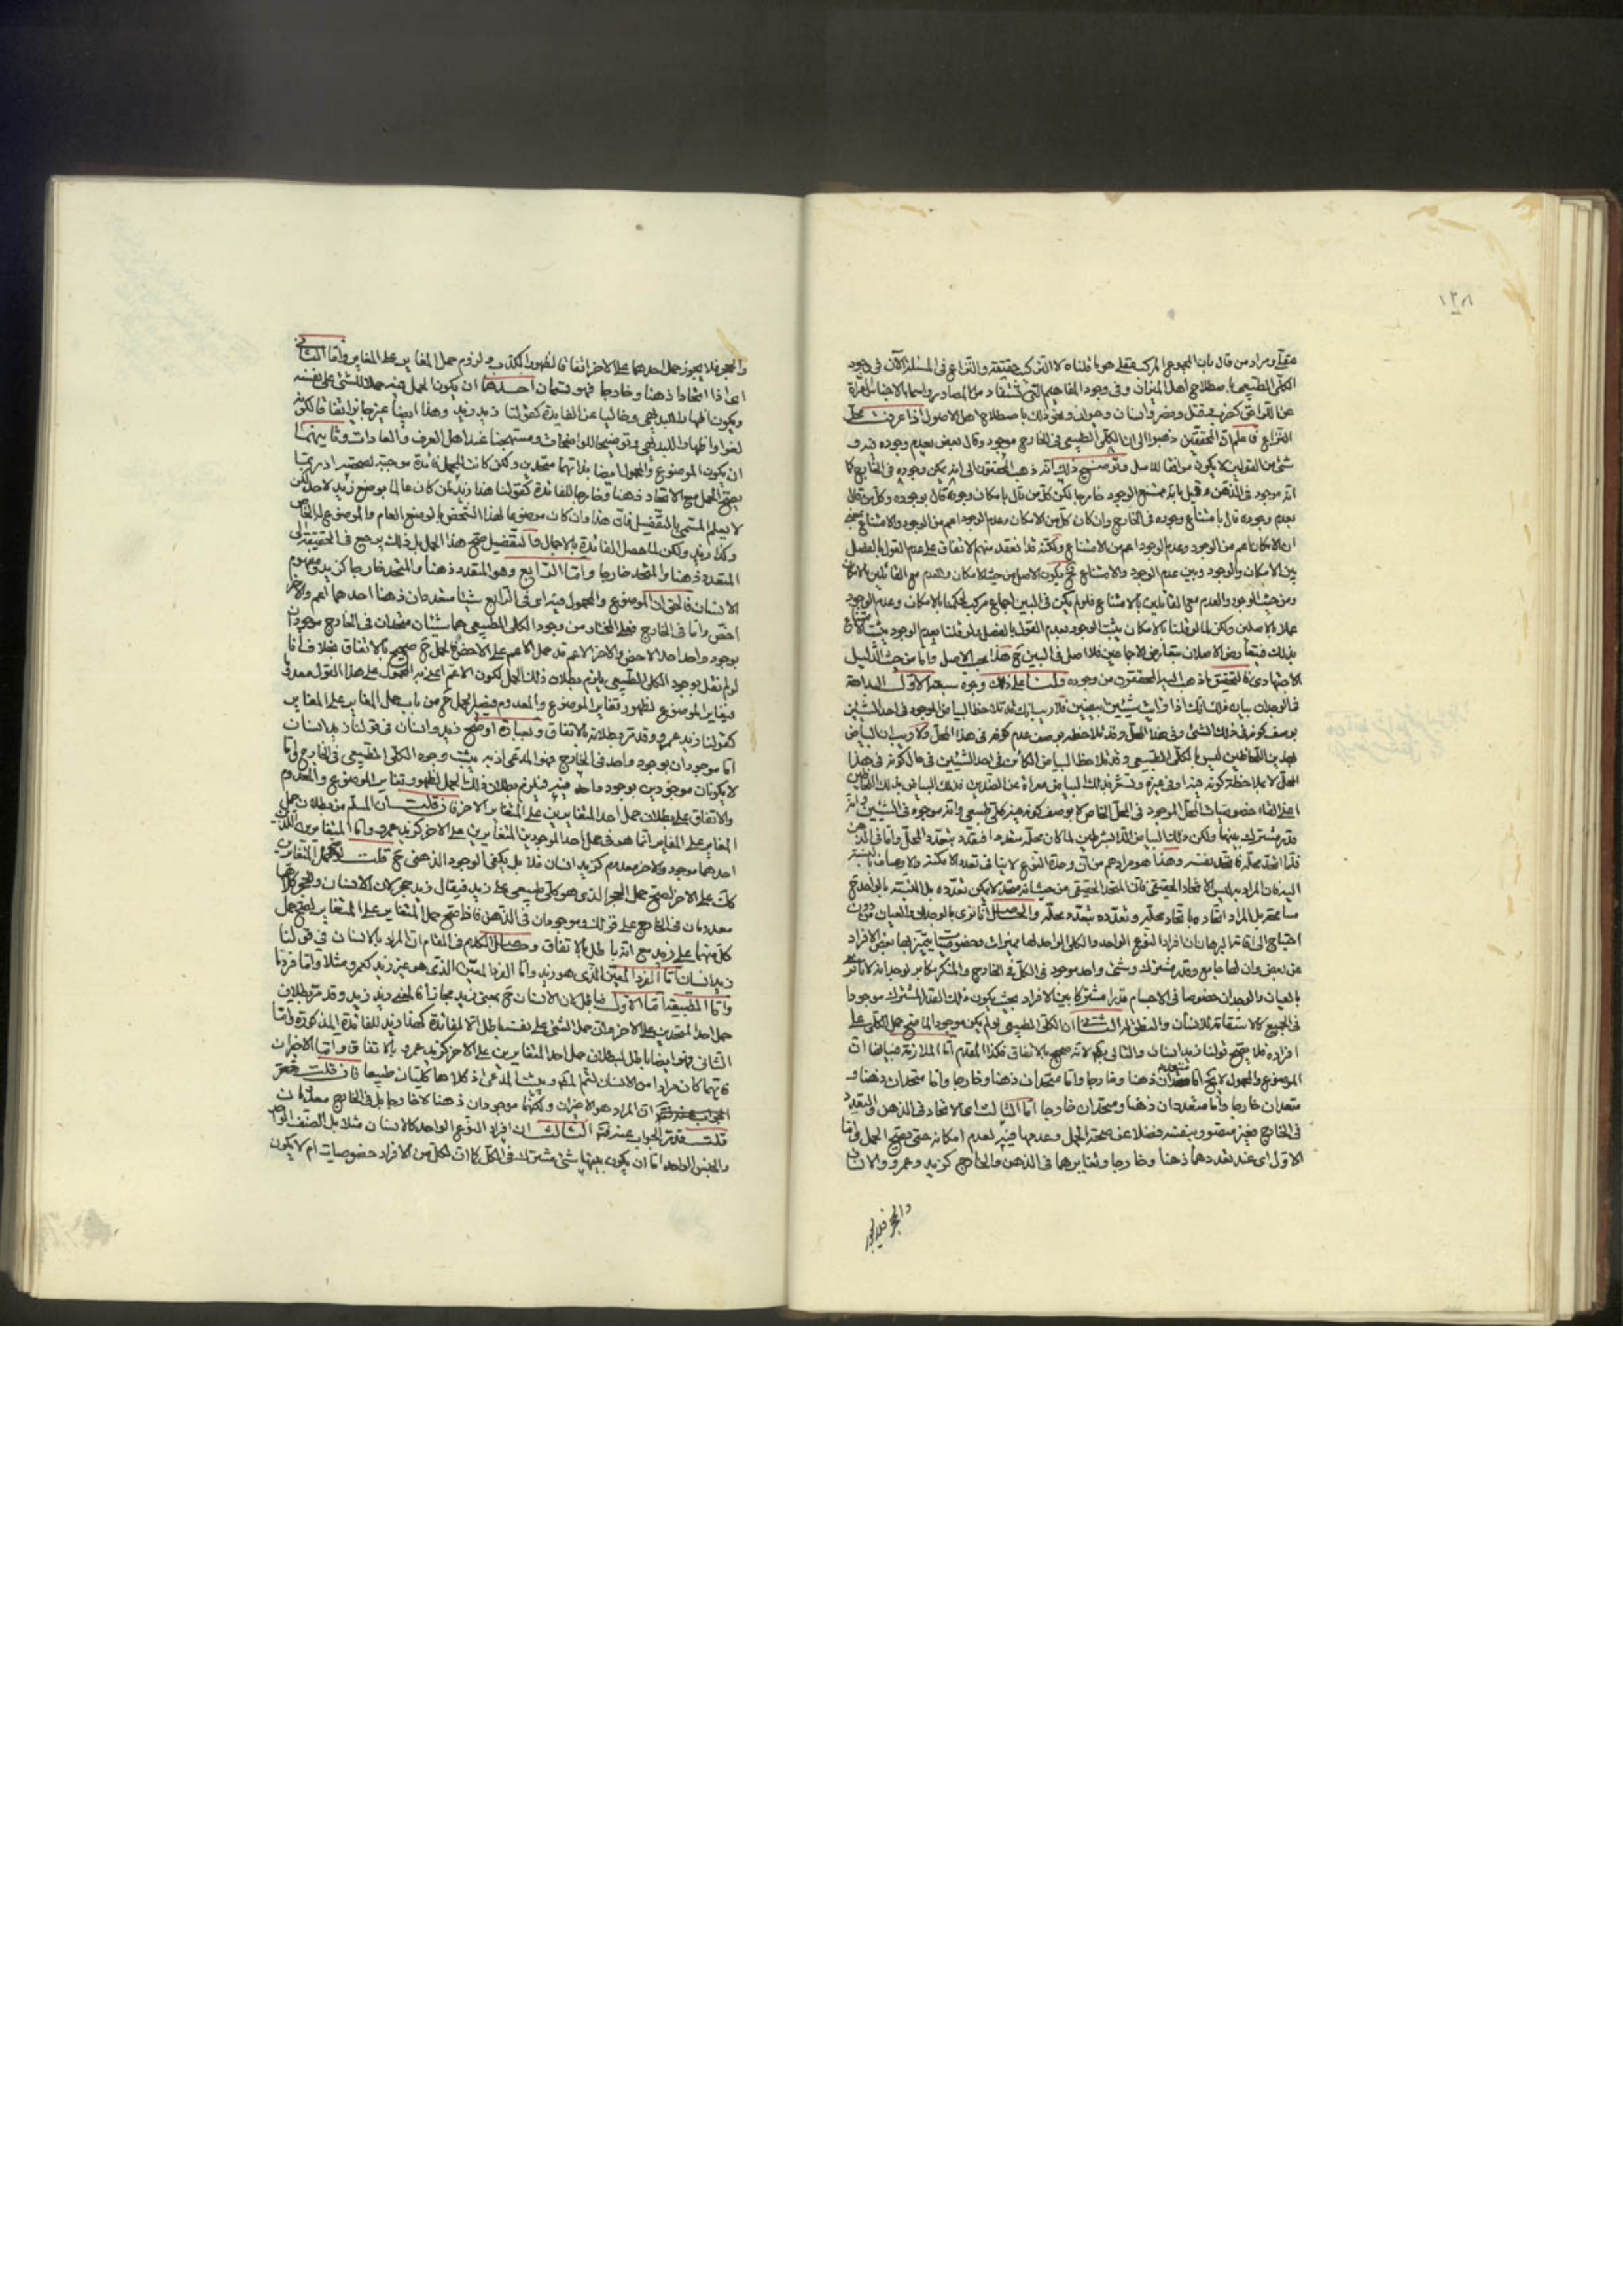 ١٣٨
عقلي ومراد من قال بان المجموع المركب عقلي هو ما قلناه لا التركب حقيقة والنزاع في المسئلة الآن في وجود
الكلي الطبيعي باصطلاح اهل الميزان وفي وجود المفاهيم التي تستفاد من المصادر واسماء الاجناس المعراة
عن اللواحق كضرب وقتل وضرب وانسان وحيوان ونحو ذلك باصطلاح اهل الاصول اذا عرفت محل
النزاع فاعلم ان المحققين ذهبوا الى ان الكلي الطبيعي في الخارج موجود وقال بعض بعدم وجوده فيه و
شئ من القولين لا يكون موافقا للاصل وتوضيح ذلك انه ذهب المحققون الى انه يمكن وجوده في الخارج كما
انه موجود في الذهن وقيل بانه ممتنع الوجود خارجا لكن كل من قال بامكان وجوده قال بوجوده وكل من قال
بعدم وجوده قال بامتناع وجوده في الخارج وان كان كل من الامكان وعدم الوجود اعم من الوجود والامتناع بمعنى
ان الامكان اعم من الوجود وعدم الوجود اعم من الامتناع ولكنه قد انعقد منهم الاتفاق على عدم القول بالفصل
بين الامكان والوجود وبين عدم الوجود والامتناع فح يكون الاصل من حيث الامكان والعدم مع القائلين بالامكان
ومن حيث الوجود والعدم مع القائلين بالامتناع فلو لم يكن في البين اجماع مركب لحكمنا بالامكان وعدم الوجود
عملا بالاصلين ولكن لما لو قلنا بالامكان يثبت الوجود بعدم القول بالفصل ولو قلنا بعدم الوجود يثبت الامتناع
بذلك فيتعارض الاصلان بتعارض الاجماعين فلا اصل في البين ح هذا بحسب الاصل واما من حيث الدليل
الاجتهادي فالتحقيق ما ذهب اليه المحققون من وجوده ولنا على ذلك وجوه سبعة الاول البداهة
بوصف كونه في ذلك الشئ وفي هذا المحل وقد تلاحظه بوصف عدم كونه في هذا المحل ولا ريب ان البياض
بهذين اللحاظين ليس بالكلي الطبيعي وقد تلاحظ البياض الكائن في احد الشيئين في حال كونه في هذا
اعني الغاء خصوصيات المحل الموجود في المحل الخاص لا بوصف كونه فيه كلي طبيعي وانه موجود في الشيئين وانه
قدر مشترك بينهما ولكن ذلك البياض اللابشرط لما كان محله متعددا فتعدد بتعدد المحل واما في الذهن
فلما اتحد محله فاتحد نفسه وهذا هو مرادهم من ان وحدة النوع لا ينافي تعدد الامكنة والاوصاف بالنسبة
اليه فان المراد به ليس الاتحاد الحقيقي فان المتحد الحقيقي من حيث انه متحد لا يمكن تعدده بل النسبة بالواحد ح
مسامحة بل المراد اتحاده باتحاد محله وتعدده بتعدد محله والحاصل انا نرى بالوجدان والعيان من دون
احتياج الى اقامة البرهان ان افراد النوع الواحد والكلي الواحد لها مميزات وخصوصيات يتميز بها بعض الافراد
عن بعض وان لها جامع وقدر مشترك وشئ واحد موجود في الكل في الخارج والمنكر مكابر لوجدانه لانا نرى
بالعيان والوجدان خصوصا في الاجسام قدرا مشتركا بين الافراد بحيث يكون ذلك القدر المشترك موجودا
في الجميع كالاستقامة للانسان والنطق له الثاني ان الكلي الطبيعي لو لم يكن موجودا لما صح حمل الكلي على
افراده فلا يصح قولنا زيد انسان والتالي بط لانه صحيح بالاتفاق فكذا المقدم اما الملازمة فبيانها ان
الموضوع والمحمول لا يخ اما متعددان ذهنا وخارجا واما متحدان ذهنا وخارجا واما متحدان ذهنا و
متعددان خارجا واما متعددان ذهنا ومتحدان خارجا اما الثالث اعني الاتحاد في الذهن والتعدد
في الخارج فغير متصور بنفسه فضلا عن صحة الحمل وعدمها فيه لعدم امكانه حتى يصح الحمل واما
الاول اي عند تعددهما ذهنا وخارجا وتغايرهما في الذهن والخارج كزيد وعمرو والانسان
والحجر فلا يجوز
والحجر فلا يجوز حمل احدهما على الاخر اتفاقا لظهور الكذب ولزوم حمل المغاير على المغاير واما الثاني
اعني اذا اتحدا ذهنا وخارجا فهو قسمان احدهما ان يكون الحمل فيه حملا للشئ على نفسه
ويكون اظهارا للبديهي وخاليا عن الفايدة كقولنا زيد زيد وهذا ايضا غير جايز اتفاقا لكونه
لغوا واظهارا للبديهي وتوضيحا للواضحات ومستهجنا عند اهل العرف والعادات وثانيهما
ان يكون الموضوع والمحمول ايضا بذاتهما متحدين ولكن كانت للحمل فائدة موجبة لصحته اذ ربما
يصح الحمل مع الاتحاد ذهنا وخارجا للفائدة كقولنا هذا زيد لمن كان عالما بوضع زيد لاحد لكن
لا يعلم المسمى بالتفصيل فان هذا وان كان موضوعا لهذا الشخص بالوضع العام والموضوع له الخاص
وكذا زيد ولكن لما حصل الفائدة بالاجمال والتفصيل صح هذا الحمل بل ذلك يرجع في الحقيقة الى
المتعدد ذهنا والمتحد خارجا واما الرابع وهو المتعدد ذهنا والمتحد خارجا كزيد ومفهوم
الانسان فالحق ان الموضوع والمحمول فيه اي في الرابع شيئا متعددان ذهنا احدهما اعم والاخر
اخص واما في الخارج فعلى المختار من وجود الكلي الطبيعي هما شيئان متحدان في الخارج موجودان
بوجود واحد احدهما الاخص والاخر الاعم قد حمل الاعم على الاخص فالحمل ح صحيح بالاتفاق بخلاف ما
لو لم نقل بوجود الكلي الطبيعي يلزم بطلان ذلك الحمل لكون الاعم اعني به المحمول على هذا القول معدوما
فيغاير الموضوع لظهور تغاير الموضوع والمعدوم فيصير الحمل ح من باب حمل المغاير على المغاير
كقولنا زيد عمرو وقد مر بطلانه بالاتفاق وبعبارة اوضح زيد وانسان في قولنا زيد انسان
اما موجودان بوجود واحد في الخارج فهو المدعى اذ به يثبت وجود الكلي الطبيعي في الخارج واما
لا يكونان موجودين بوجود واحد فيه فيلزم بطلان ذلك الحمل لظهور تغاير الموضوع والمعدوم
والاتفاق على بطلان حمل احد المتغايرين على المتغاير الاخر فان قلت ان المسلم من بطلان حمل
المغاير على المغاير انما هو في حمل احد الموجودين المتغايرين على الاخر كزيد عمرو واما المتغايرين اللذين
احدهما موجود والاخر معدوم كزيد انسان فلا بل يكفي الوجود الذهني ح قلت
كل على الاخر لصح حمل الحجر الذي هو كلي طبيعي على زيد فيقال زيد حجر لان الانسان والحجر كلاهما
معدومان في الخارج على قولك وموجودان في الذهن فاذا صح حمل المتغاير على المتغاير لصح حمل
كل منهما على زيد مع انه باطل بالاتفاق وحاصل الكلام في المقام ان المراد بالانسان في قولنا
زيد انسان اما الفرد المعين الذي هو زيد واما الفرد المعين الذي هو غير زيد كعمرو مثلا واما فردما
واما الطبيعة اما الاول فباطل لان الانسان ح بمعنى زيد مجازا فالمعنى زيد زيد وقد مر بطلان
حمل احد المتحدين على الاخر مثل حمل الشئ على نفسه باطل الا لفائدة كهذا زيد للفائدة المذكورة واما
الثاني فهو ايضا باطل لبطلان حمل احد المتغايرين على الاخر كزيد عمرو بالاتفاق واما الاخيران
فايهما كان مرادا من الانسان لتم المطلوب ويثبت المدعى اذ كلاهما كليان طبيعيان فان قلت
ان المراد هو الاخيران ولكنهما موجودان ذهنا لا خارجا بل في الخارج معدومان
قلت قد مر الجواب عنه فتدبر الثالث ان افراد النوع الواحد كالانسان مثلا بل الصنف الواحد
والجنس الواحد اما ان يكون بينها شئ مشترك في الكل كما ان لكل من الافراد خصوصيات ام لا يكون